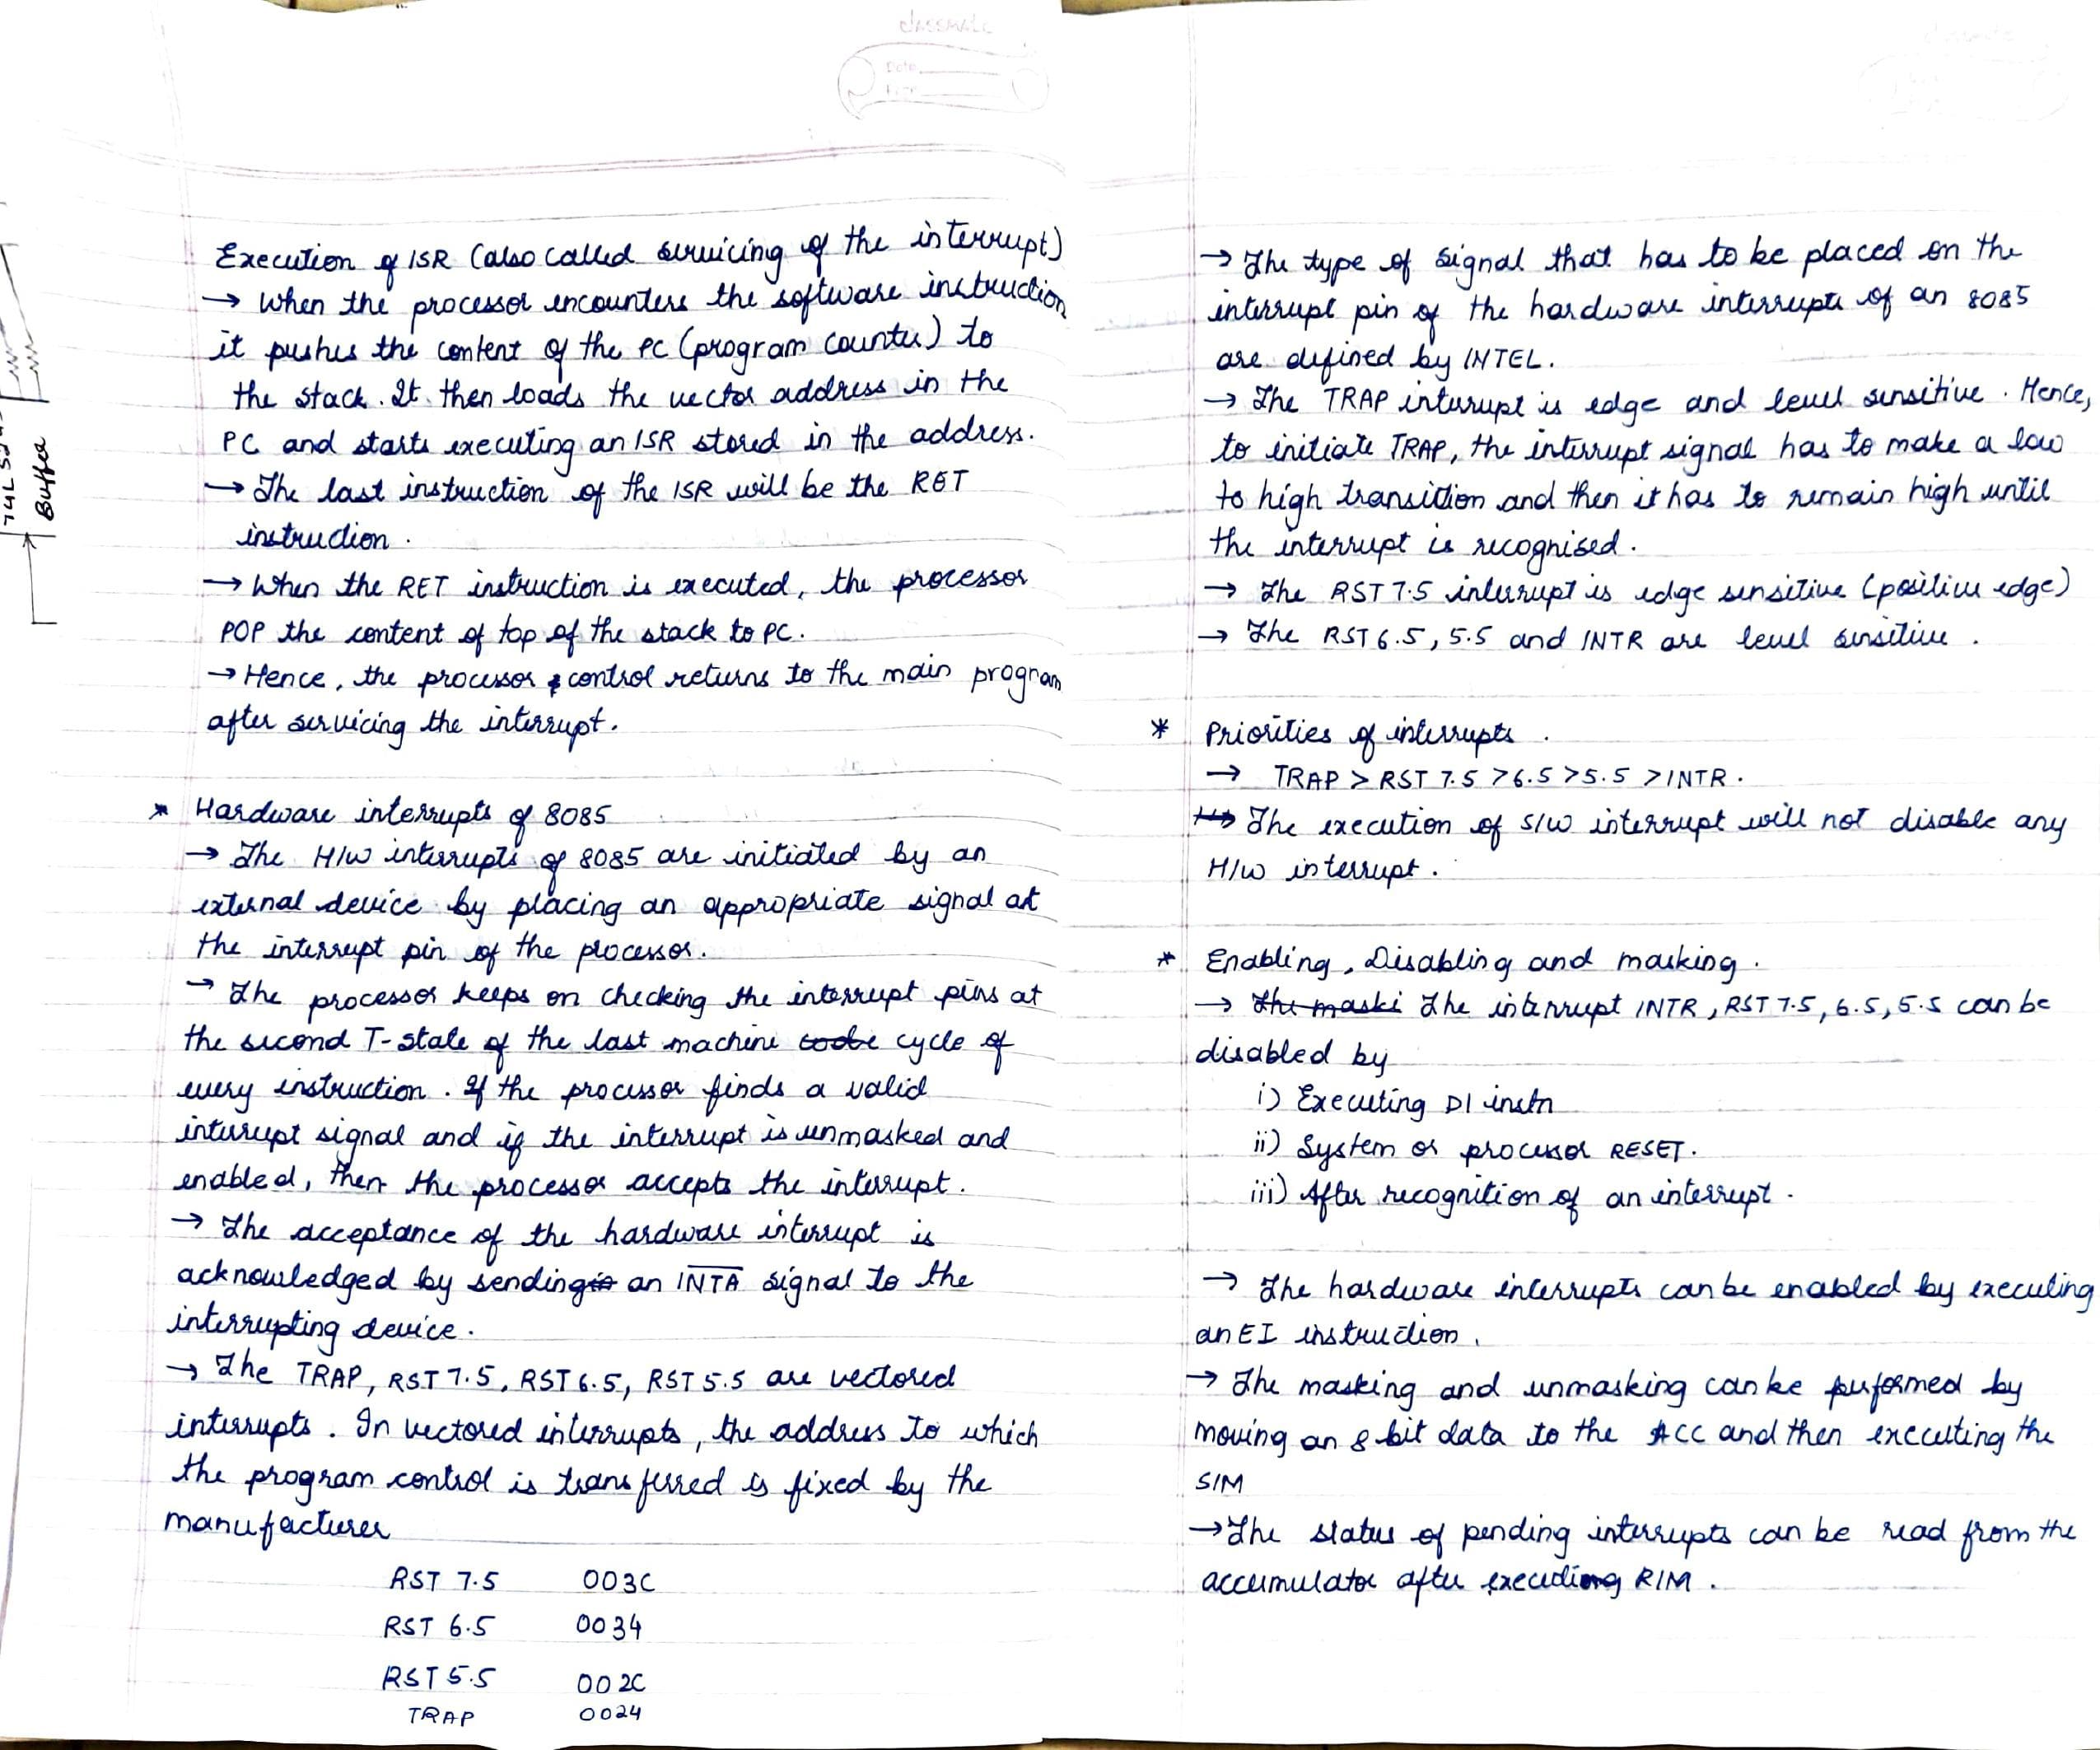 classmate
Date
Page
74LS245
Buffer
Execution of ISR (also called servicing of the interrupt)
→ When the processor encounters the software instruction
it pushes the content of the PC (program counter) to
the stack. It then loads the vector address in the
PC and starts executing an ISR stored in the address.
→ The last instruction of the ISR will be the RET
instruction.
→ When the RET instruction is executed, the processor
POP the content of top of the stack to PC.
→ Hence, the processor & control returns to the main program
after servicing the interrupt.
* Hardware interrupts of 8085
→ The H/W interrupts of 8085 are initiated by an
external device by placing an appropriate signal at
the interrupt pin of the processor.
→ The processor keeps on checking the interrupt pins at
the second T-state of the last machine code cycle of
every instruction. If the processor finds a valid
interrupt signal and if the interrupt is unmasked and
enabled, then the processor accepts the interrupt.
→ The acceptance of the hardware interrupt is
acknowledged by sending an INTA signal to the
interrupting device.
→ The TRAP, RST 7.5, RST 6.5, RST 5.5 are vectored
interrupts. In vectored interrupts, the address to which
the program control is transferred is fixed by the
manufacturer
RST 7.5 003C
RST 6.5 0034
RST 5.5 002C
TRAP 0024
→ The type of signal that has to be placed on the
interrupt pin of the hardware interrupts of an 8085
are defined by INTEL.
→ The TRAP interrupt is edge and level sensitive. Hence,
to initiate TRAP, the interrupt signal has to make a low
to high transition and then it has to remain high until
the interrupt is recognised.
→ The RST 7.5 interrupt is edge sensitive (positive edge)
→ The RST 6.5, 5.5 and INTR are level sensitive.
* Priorities of interrupts.
→ TRAP > RST 7.5 > 6.5 > 5.5 > INTR.
→ The execution of S/W interrupt will not disable any
H/W interrupt.
* Enabling, Disabling and masking.
→ The maski The interrupt INTR, RST 7.5, 6.5, 5.5 can be
disabled by
i) Executing DI instn
ii) System or processor RESET.
iii) After recognition of an interrupt.
→ The hardware interrupts can be enabled by executing
an EI instruction.
→ The masking and unmasking can be performed by
moving an 8 bit data to the ACC and then executing the
SIM
→ The status of pending interrupts can be read from the
accumulator after executing RIM.